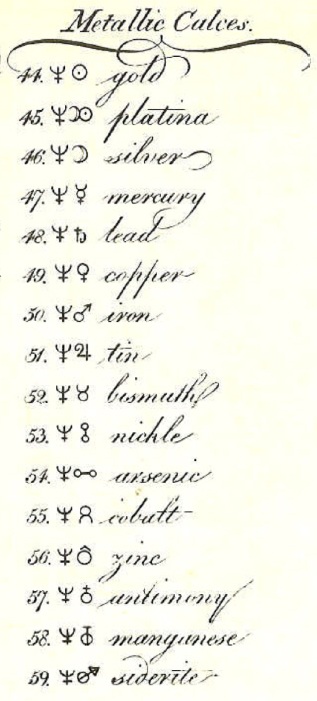 Metallic Calces.
44. 🜘☉ gold
45. 🜘☽☉ platina
46. 🜘☽ silver
47. 🜘☿ mercury
48. 🜘♄ lead
49. 🜘♀ copper
50. 🜘♂ iron
51. 🜘♃ tin
52. 🜘♉ bismuth
53. nickle
54. arsenic
55. cobalt
56. zinc
57. 🜘♁ antimony
58. manganese
59. siderite